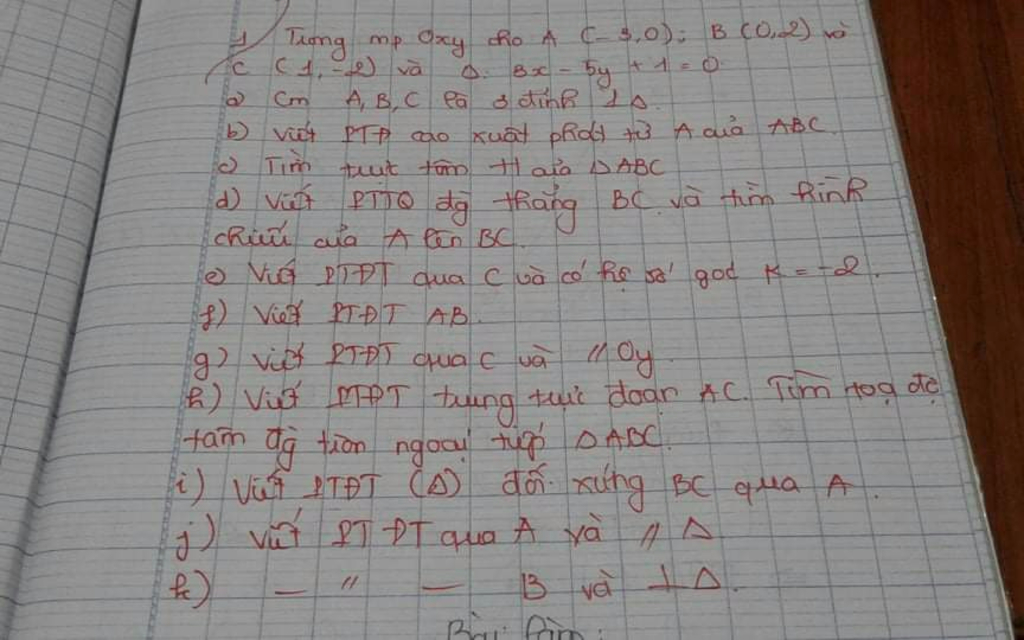 1 Trong mp Oxy cho A (-3,0); B (0,2) và
C (1,-2) và Δ. 3x - 5y + 1 = 0
a) Cm A, B, C là 3 đỉnh 1 Δ.
b) Viết PTĐ cao xuất phát từ A của ABC.
c) Tìm trực tâm H của ΔABC
d) Viết PTTQ đg thẳng BC và tìm hình
chiếu của A lên BC.
e) Viết PTĐT qua C và có hệ số góc K = -2.
f) Viết PTĐT AB.
g) Viết PTĐT qua C và // Oy.
h) Viết PTĐT trung trực đoạn AC. Tìm toạ độ
tâm đg tròn ngoại tiếp ΔABC.
i) Viết PTĐT (Δ) đối xứng BC qua A.
j) Viết PT ĐT qua A và // Δ
k) — // — B và ⊥ Δ.
Bài làm: